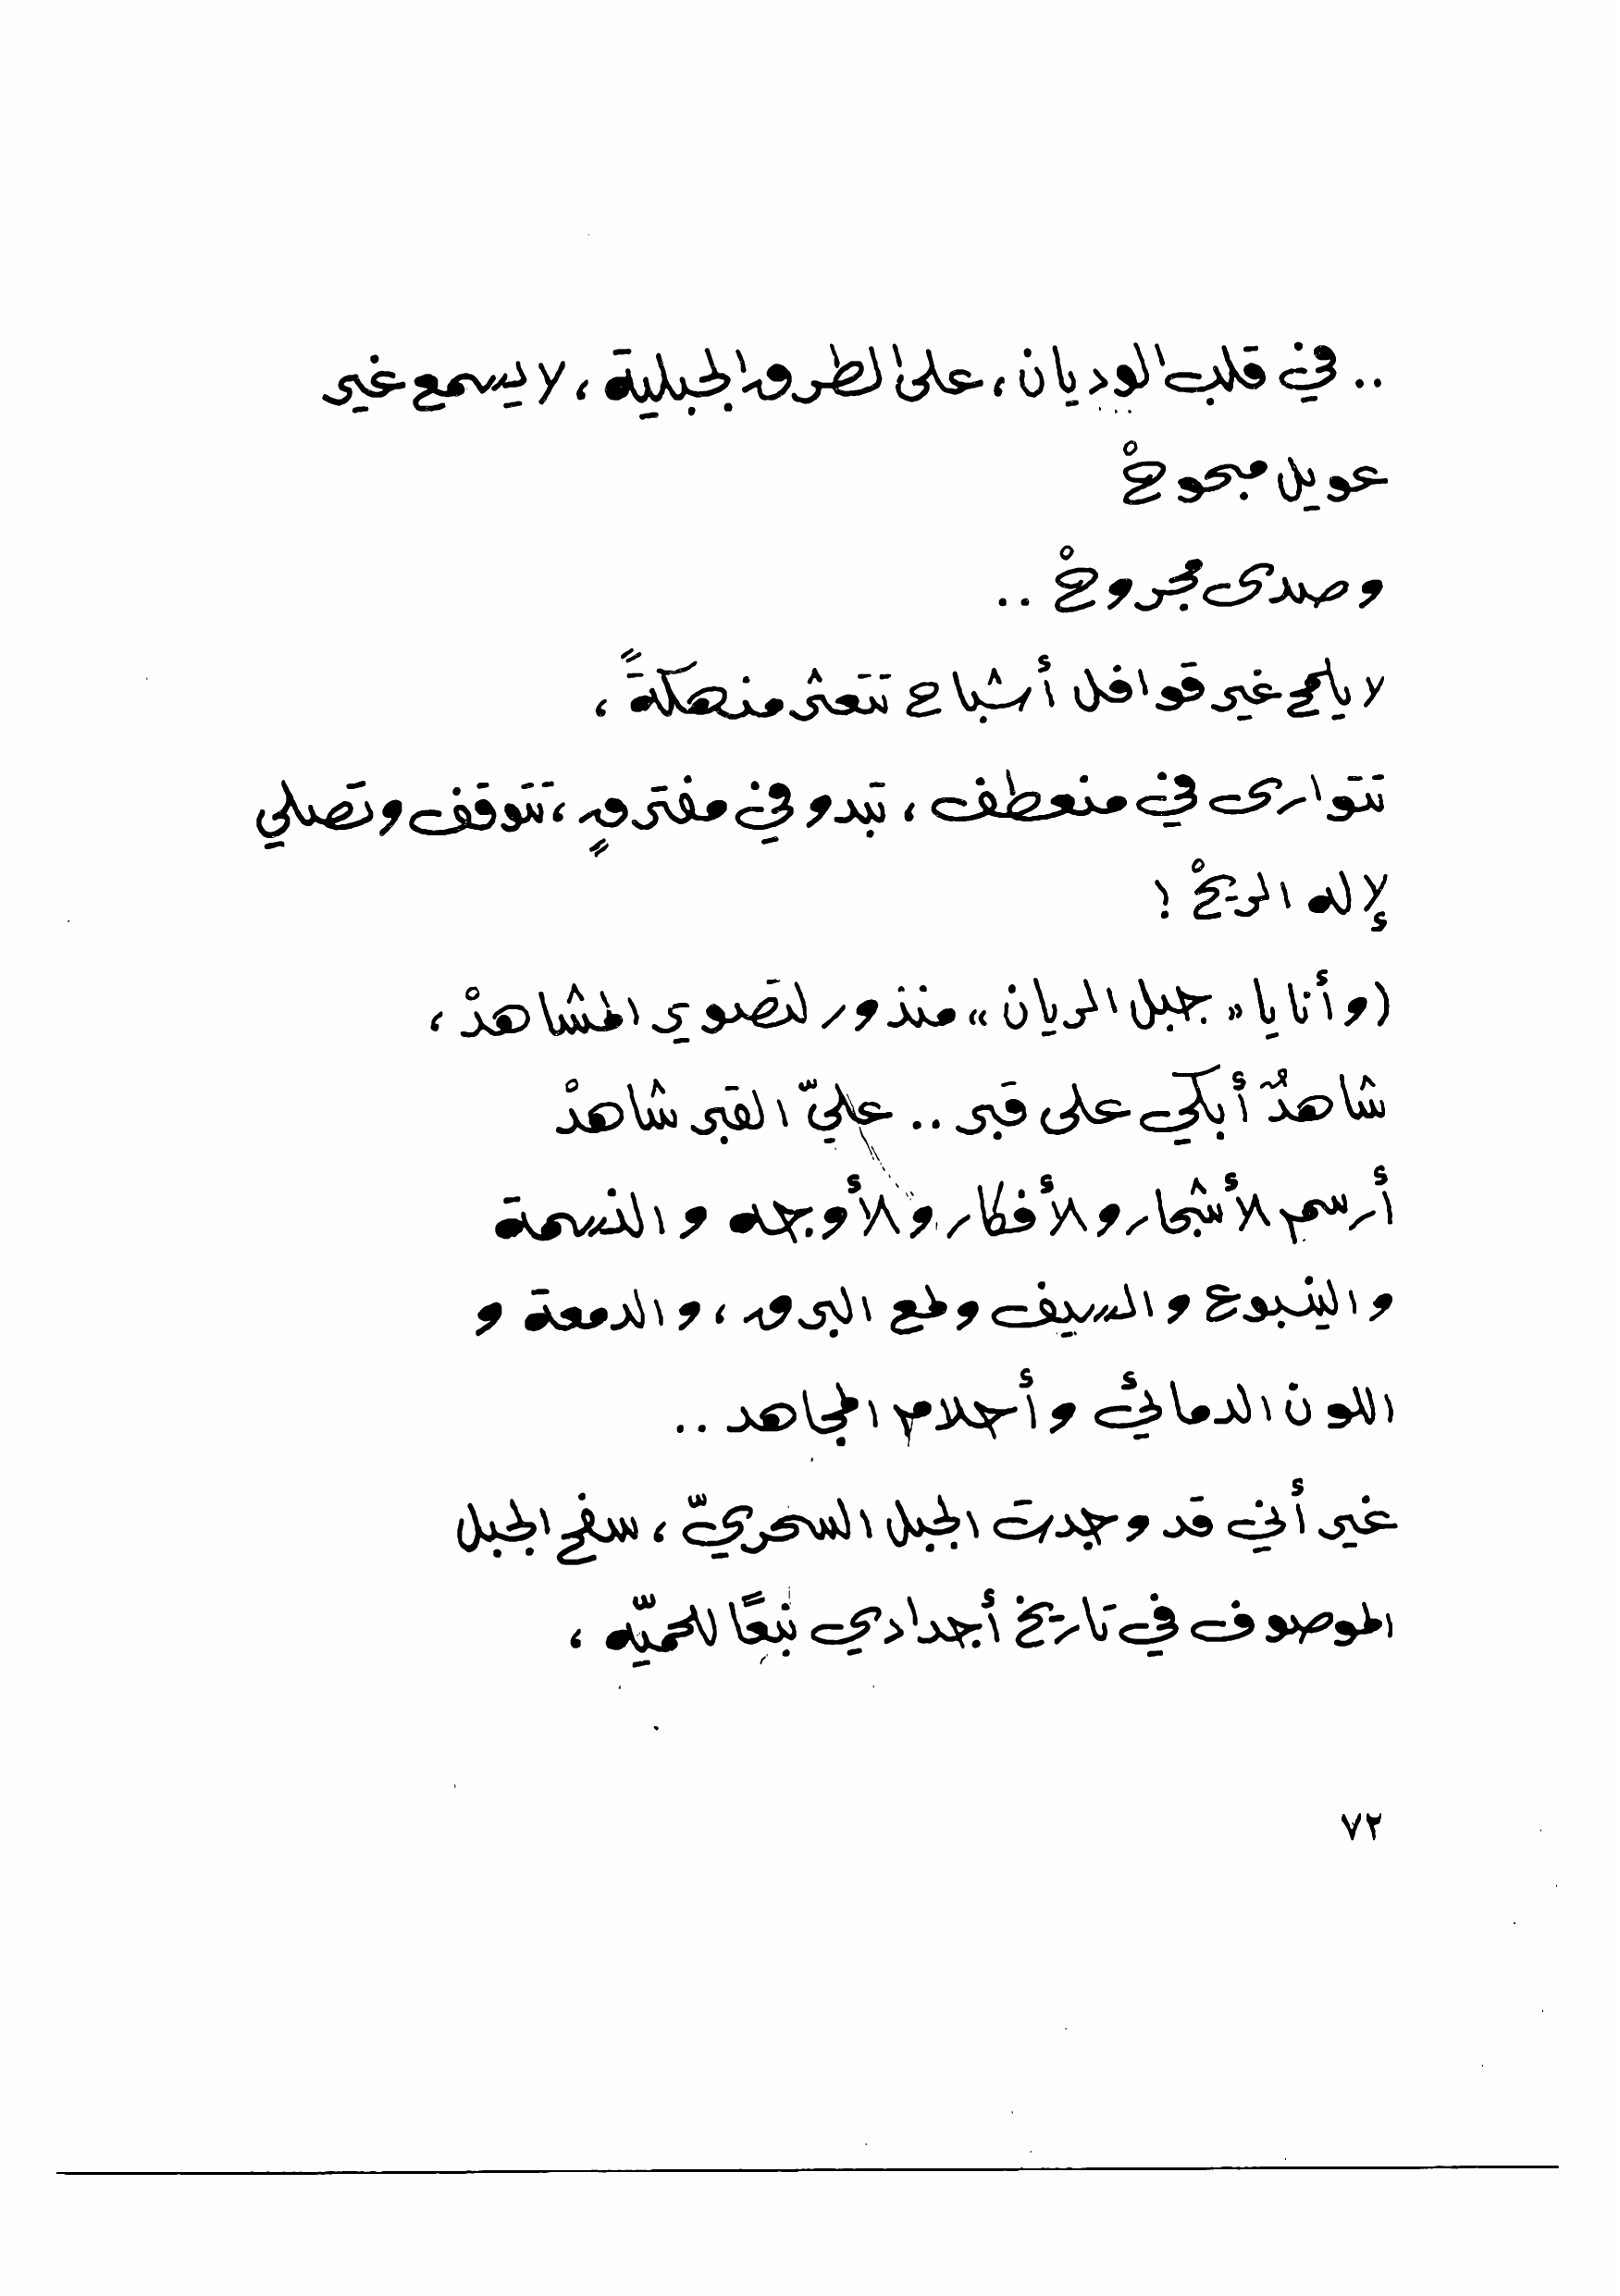 .. في قلب الوديان، على الطرق الجبلية، لا يسمع غير
عويل مبحوحْ
وصدى مجروحْ ..
لا يلمح غير قوافل أشباح تتعثر منهكةً،
تتوارى في منعطف، تبدو في مفترقٍ، تتوقف وتصلي
لإله الريحْ !
(وأنا يا «جبل الريان» منذور لتصوير المشاهدْ،
شاهدٌ أبكي على قبر .. عليّ القبر شاهدْ
أرسم الأشجار والأفكار والأوجه والنسمة
والينبوع والسيف ولمع البرق، والدمعة و
اللون الدمائي وأحلام المجاهد ..
غير أني قد وجدت الجبل السحريّ، سفح الجبل
الموصوف في تاريخ أجدادي نبعًا للحميّه،
٧٢